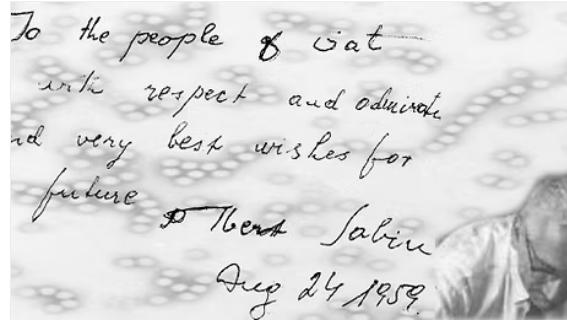 To the people of
with respect and admirati
nd very best wishes for
future
Albert Sabin
Aug 24 1959.